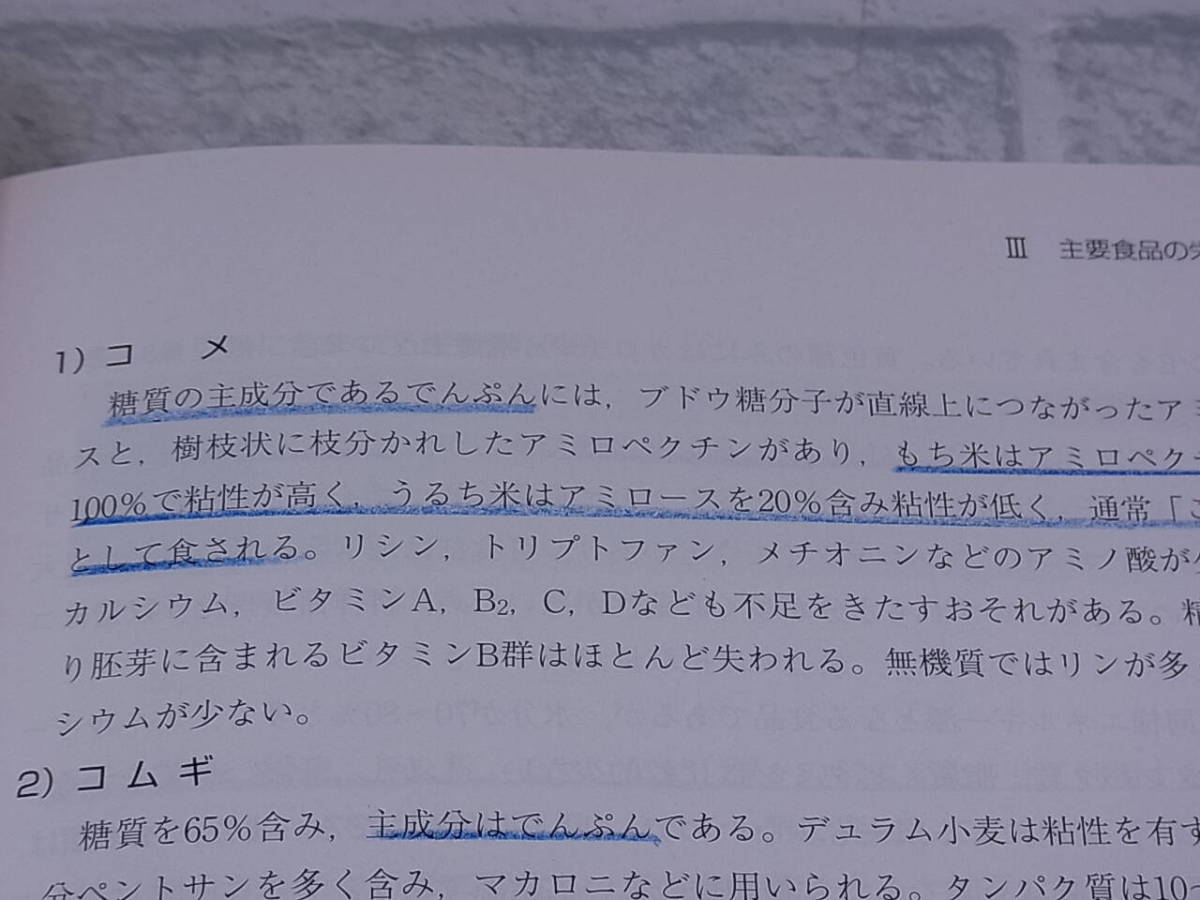 Ⅲ 主要食品の
1) コ メ
糖質の主成分であるでんぷんには，ブドウ糖分子が直線上につながったアミ
スと，樹枝状に枝分かれしたアミロペクチンがあり，もち米はアミロペクチ
100%で粘性が高く，うるち米はアミロースを20%含み粘性が低く，通常「
として食される。リシン，トリプトファン，メチオニンなどのアミノ酸が
カルシウム，ビタミンA，B₂，C，Dなども不足をきたすおそれがある。精
り胚芽に含まれるビタミンB群はほとんど失われる。無機質ではリンが多
シウムが少ない。
2) コムギ
糖質を65%含み，主成分はでんぷんである。デュラム小麦は粘性を有す
分ペントサンを多く含み，マカロニなどに用いられる。タンパク質は10